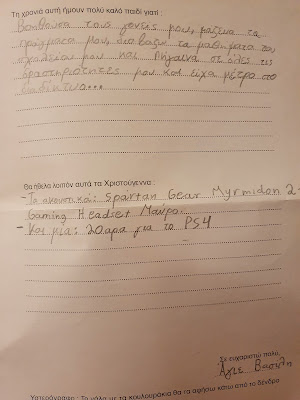 Τη χρονιά αυτή ήμουν πολύ καλό παιδί γιατί :
Βοηθουσα τους γονείς μου, μαζευα τα
πράγματα μου, διαβαζα τα μαθηματα του
σχολειου μου και πήγαινα σε όλες τις
δραστηριότητες μου και είχα μέτρο στο
διαδικτυο...
Θα ήθελα λοιπόν αυτά τα Χριστούγεννα :
- Τα ακουστικα: Spartan Gear Myrmidon 2
Gaming Headset Μαύρο.
- Και μία: 20αρα για το PS4
Σε ευχαριστώ πολύ,
Άγιε Βασιλη
Υστερόγραφο : Το γάλα με τα κουλουράκια θα τα αφήσω κάτω από το δέντρο